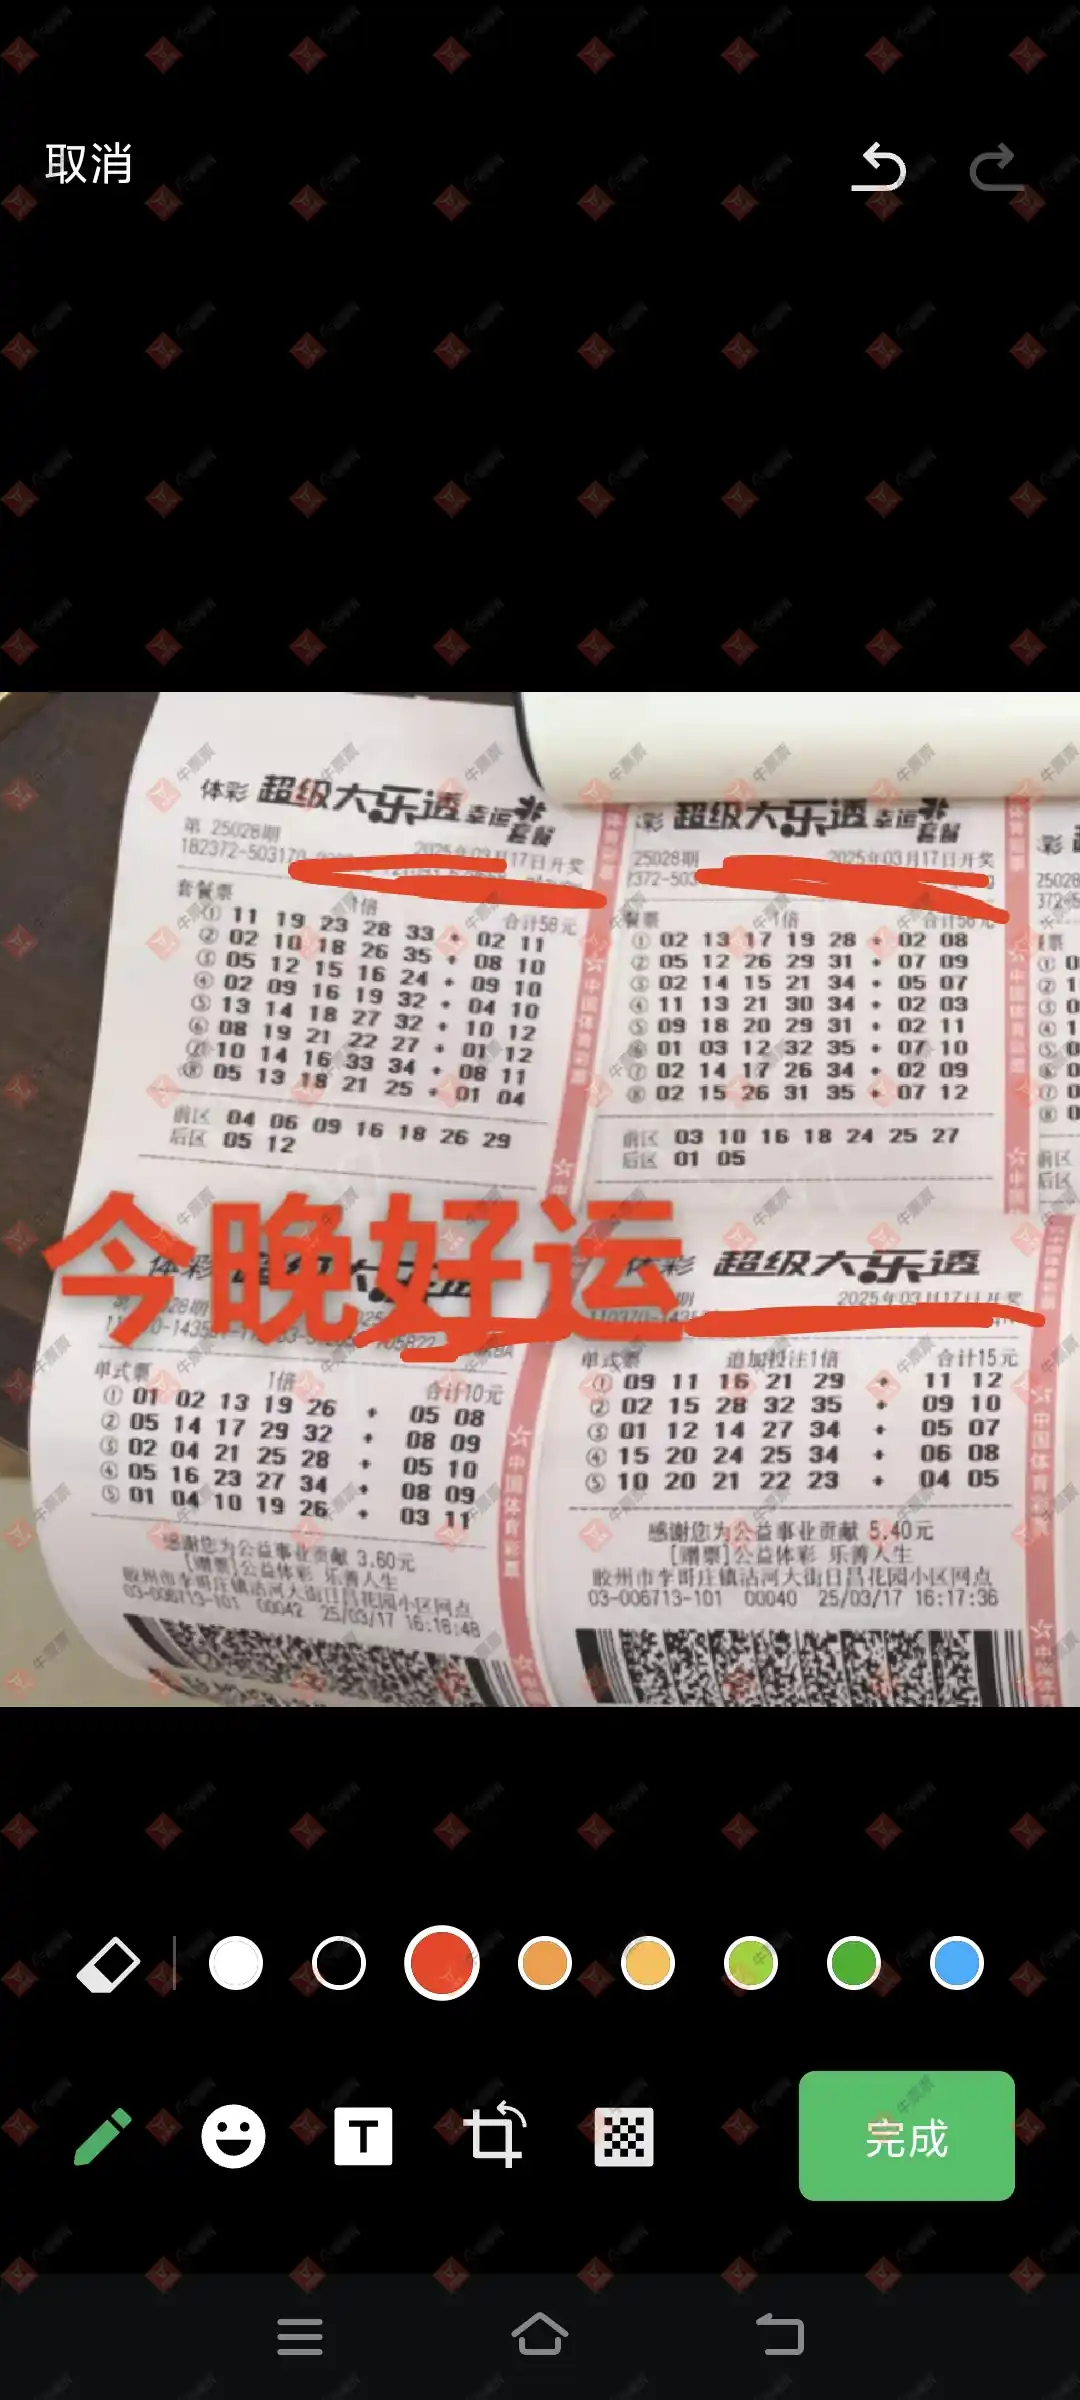 取消
体彩 超级大乐透 幸运套餐
第 25028期
2025年03月17日开奖
182372-503170
套餐票 1倍 合计58元
① 11 19 23 28 33 + 02 11
② 02 10 18 26 35 + 08 10
③ 05 12 15 16 24 + 09 10
④ 02 09 16 19 32 + 04 10
⑤ 13 14 18 27 32 + 10 12
⑥ 08 19 21 22 27 + 01 12
⑦ 10 14 16 33 34 + 08 11
⑧ 05 13 18 21 25 + 01 04
前区 04 06 09 16 18 26 29
后区 05 12
彩 超级大乐透 幸运套餐
25028期 2025年03月17日开奖
372-503
餐票 1倍 合计58元
① 02 13 17 19 28 + 02 08
② 05 12 26 29 31 + 07 09
③ 02 14 15 21 34 + 05 07
④ 11 13 21 30 34 + 02 03
⑤ 09 18 20 29 31 + 02 11
⑥ 01 03 12 32 35 + 07 10
⑦ 02 14 17 26 34 + 02 09
⑧ 02 15 26 31 35 + 07 12
前区 03 10 16 18 24 25 27
后区 01 05
今晚好运
单式票 1倍 合计10元
① 01 02 13 19 26 + 05 08
② 05 14 17 29 32 + 08 09
③ 02 04 21 25 28 + 05 10
④ 05 16 23 27 34 + 08 09
⑤ 01 04 10 19 26 + 03 11
感谢您为公益事业贡献 3.60元
[赠票]公益体彩 乐善人生
胶州市李哥庄镇沽河大街日昌花园小区网点
03-006713-101 00042 25/03/17 16:18:48
体彩 超级大乐透
期 2025年03月17日开奖
110370-1435
单式票 追加投注1倍 合计15元
① 09 11 16 21 29 + 11 12
② 02 15 28 32 35 + 09 10
③ 01 12 14 27 34 + 05 07
④ 15 20 24 25 34 + 06 08
⑤ 10 20 21 22 23 + 04 05
感谢您为公益事业贡献 5.40元
[赠票]公益体彩 乐善人生
胶州市李哥庄镇沽河大街日昌花园小区网点
03-006713-101 00040 25/03/17 16:17:36
中国体育彩票
完成